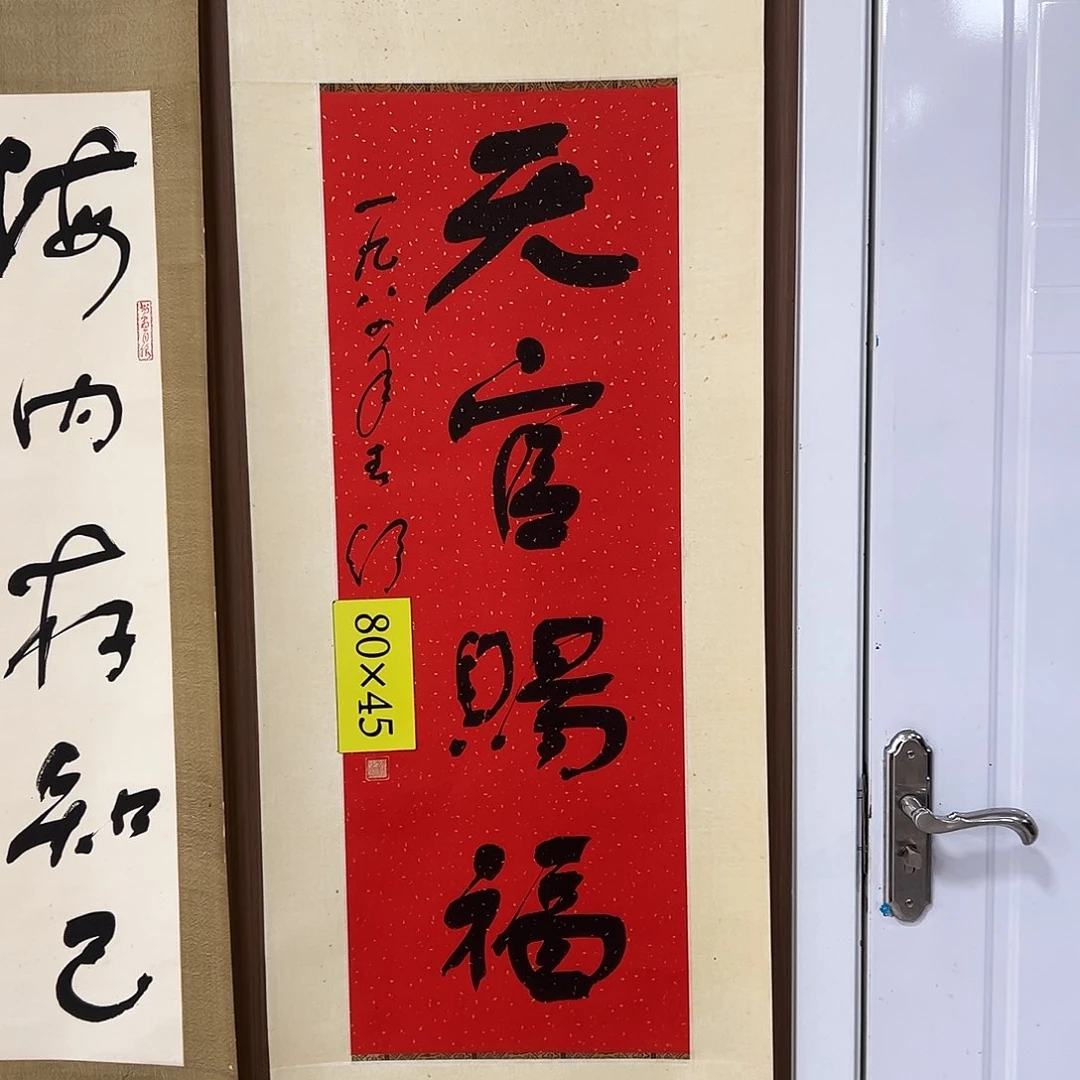 天官赐福
一九八四年春
80×45
海内存知己